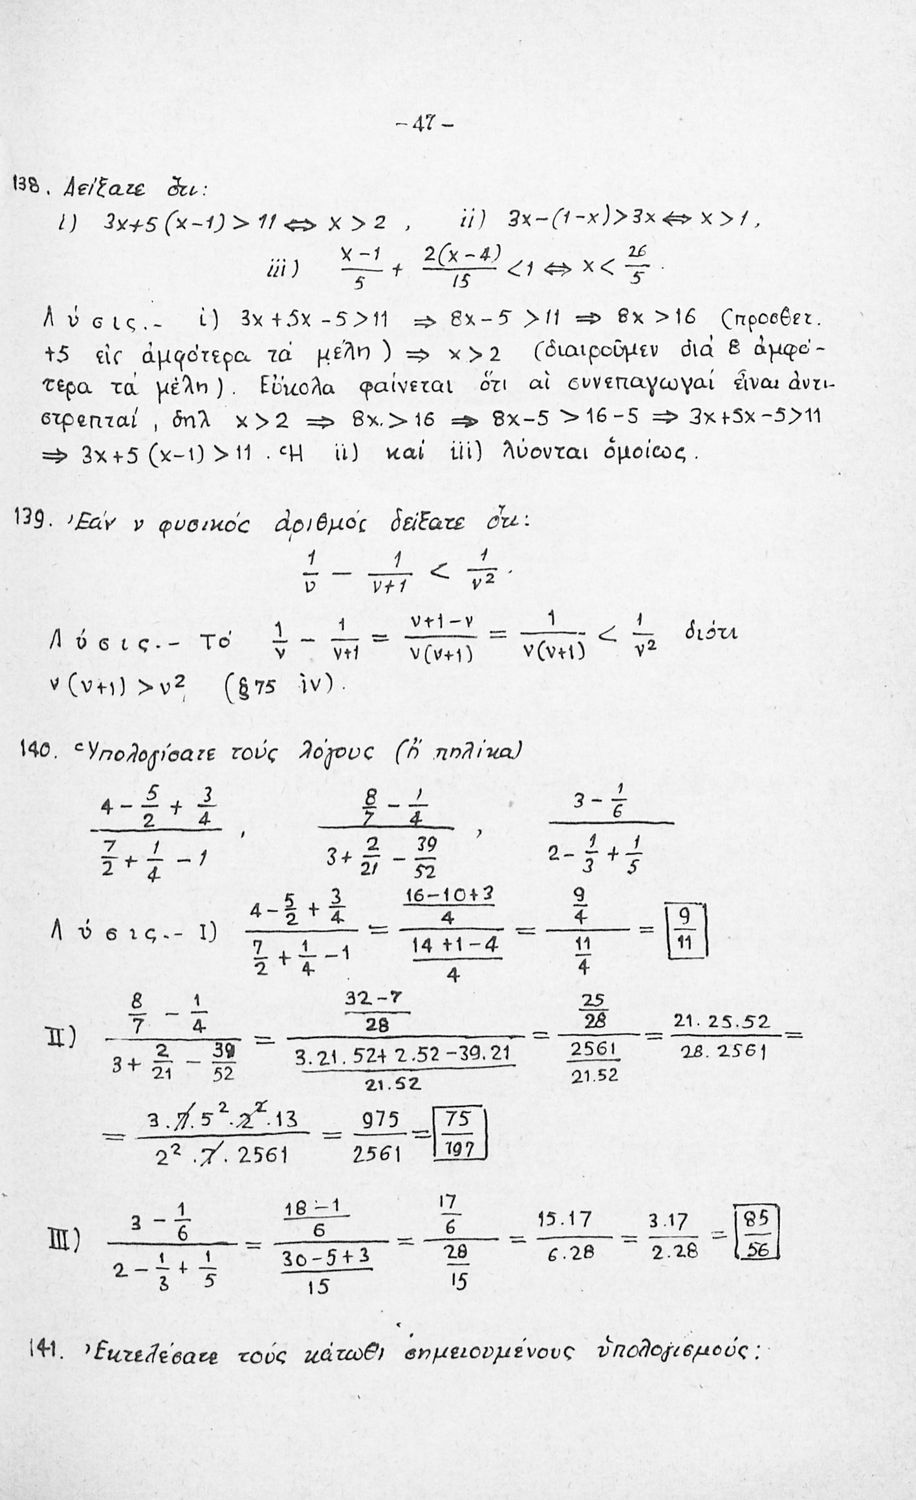 -47-
138. Δείξατε ὅτι:
i) 3x+5(x-1)>11⇔x>2 , ii) 3x-(1-x)>3x⇔x>1,
iii) (x-1)/5 + 2(x-4)/15 <1⇔x< 26/5 .
Λύσις.- i) 3x+5x-5>11 ⇒ 8x-5>11 ⇒ 8x>16 (προσθετ.
+5 εἰς ἀμφότερα τά μέλη) ⇒ x>2 (διαιροῦμεν διά 8 ἀμφό-
τερα τά μέλη). Εὔκολα φαίνεται ὅτι αἱ συνεπαγωγαί εἶναι ἀντι-
στρεπταί, δηλ x>2 ⇒ 8x.>16 ⇒ 8x-5>16-5 ⇒ 3x+5x-5>11
⇒ 3x+5(x-1)>11 . Ἡ ii) καί iii) λύονται ὁμοίως.
139. Ἐάν ν φυσικός ἀριθμός δείξατε ὅτι:
1/ν - 1/(ν+1) < 1/ν² .
Λύσις.- Τό 1/ν - 1/(ν+1) = (ν+1-ν)/(ν(ν+1)) = 1/(ν(ν+1)) < 1/ν² διότι
ν(ν+1)>ν² (§75 iv).
140. Ὑπολογίσατε τούς λόγους (ἤ πηλίκα)
(4-5/2+3/4)/(7/2+1/4-1) , (8/7-1/4)/(3+2/21-39/52) , (3-1/6)/(2-1/3+1/5)
Λύσις.- I) (4-5/2+3/4)/(7/2+1/4-1) = ((16-10+3)/4)/((14+1-4)/4) = (9/4)/(11/4) = 9/11
II) (8/7-1/4)/(3+2/21-39/52) = ((32-7)/28)/((3.21.52+2.52-39.21)/21.52) = (25/28)/(2561/21.52) = 21.25.52/28.2561 =
= 3.7.5².2².13/2².7.2561 = 975/2561 = 75/197
III) (3-1/6)/(2-1/3+1/5) = ((18-1)/6)/((30-5+3)/15) = (17/6)/(28/15) = 15.17/6.28 = 3.17/2.28 = 85/56
141. Ἐκτελέσατε τούς κάτωθι σημειουμένους ὑπολογισμούς: